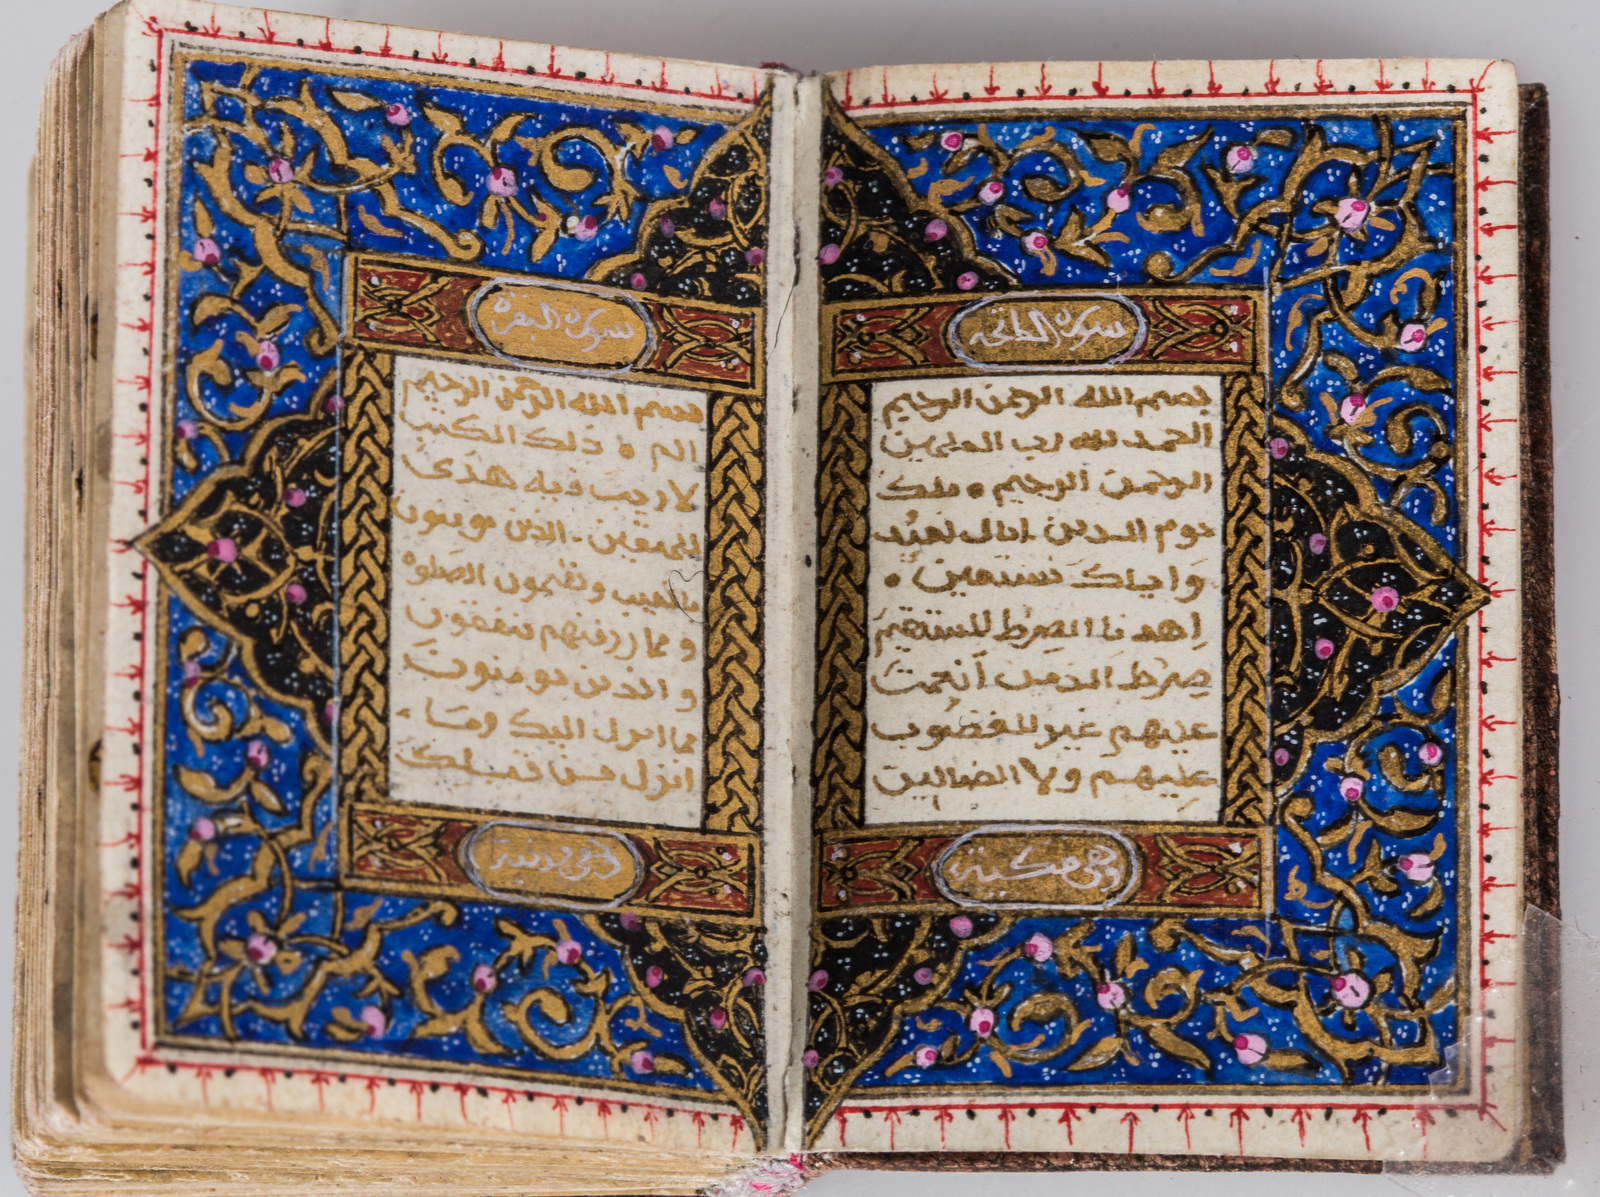 سورة الفاتحة
بسم الله الرحمن الرحيم
الحمد لله رب العلمين
الرحمن الرحيم ملك
يوم الدين اياك نعبد
وَاياك نستعين
اِهدنا الصِرٰط المستقيمَ
صِرٰط الذين اَنعمتَ
عليهم غير المغضُوب
عليهم ولا الضالين
وهى مكية
سورة البقرة
بسم الله الرحمن الرحيم
الم ذلك الكتٰب
لا ريبَ فيه هدَى
للمتقين الذين يومنون
بالغيب ويقيمون الصَلوة
و مما رزقنهم ينفقون
و الذين يومنونَ
بما انزل اليك ومَا
انزل من قبلكَ
وهى مدنية